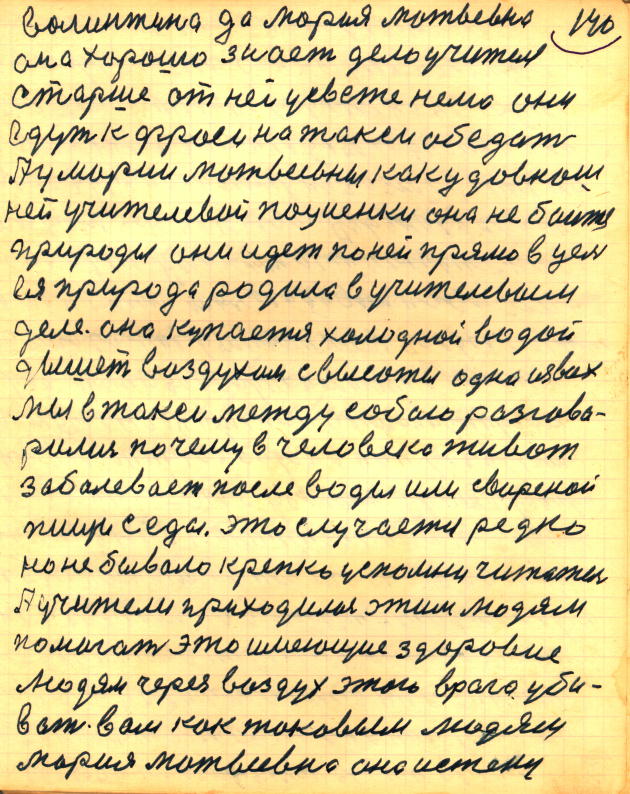 валинтина да мария матвевна 140
она хорошо знает дело учителя
старше от ней невсте нема они
едут к фросе на такси обедат
А у марии матвеевны как у довнош
ней учителевой поценки она не боится
природы они идет по ней прямо в цел
ея природа родила в учителевым
деле. она купается холодной водой
дышет воздухам с высоты одна из вах
мы в такси между собою разгова-
рилия почему в человека живот
заболевает после воды или свареной
пищи седы. это случается редко
но не бывало крепко успомни читател
А учители приходился этим людям
помагат это имеющие здоровие
людям через воздух этого врага уби-
ват. вам как таковым людям
мария матвеевна она истену